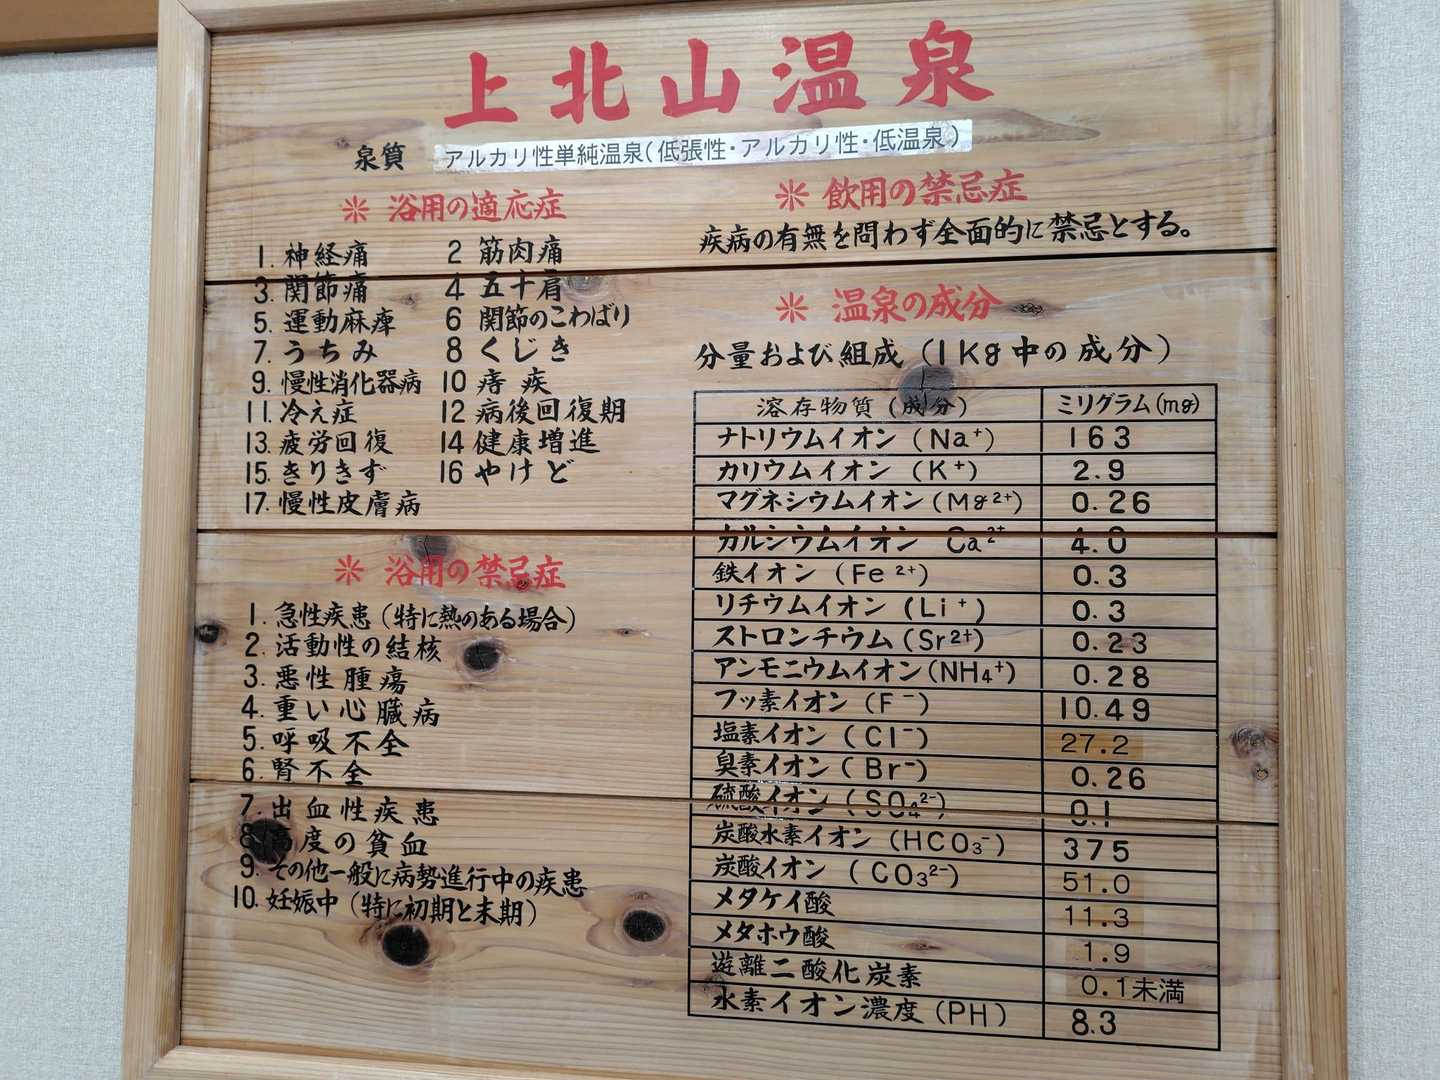 上北山温泉
泉質 アルカリ性単純温泉(低張性・アルカリ性・低温泉)
＊ 浴用の適応症
1. 神経痛 2 筋肉痛
3. 関節痛 4 五十肩
5. 運動麻痺 6 関節のこわばり
7. うちみ 8 くじき
9. 慢性消化器病 10 痔疾
11. 冷え症 12 病後回復期
13. 疲労回復 14 健康増進
15. きりきず 16 やけど
17. 慢性皮膚病
＊ 浴用の禁忌症
1. 急性疾患(特に熱のある場合)
2. 活動性の結核
3. 悪性腫瘍
4. 重い心臓病
5. 呼吸不全
6. 腎不全
7. 出血性疾患
8. 高度の貧血
9. その他一般に病勢進行中の疾患
10. 妊娠中(特に初期と末期)
＊ 飲用の禁忌症
疾病の有無を問わず全面的に禁忌とする。
＊ 温泉の成分
分量および組成(1Kg中の成分)
溶存物質(成分) ミリグラム(mg)
ナトリウムイオン(Na⁺) 163
カリウムイオン(K⁺) 2.9
マグネシウムイオン(Mg²⁺) 0.26
カルシウムイオン Ca²⁺ 4.0
鉄イオン(Fe²⁺) 0.3
リチウムイオン(Li⁺) 0.3
ストロンチウム(Sr²⁺) 0.23
アンモニウムイオン(NH₄⁺) 0.28
フッ素イオン(F⁻) 10.49
塩素イオン(Cl⁻) 27.2
臭素イオン(Br⁻) 0.26
硫酸イオン(SO₄²⁻) 0.1
炭酸水素イオン(HCO₃⁻) 375
炭酸イオン(CO₃²⁻) 51.0
メタケイ酸 11.3
メタホウ酸 1.9
遊離二酸化炭素 0.1未満
水素イオン濃度(PH) 8.3